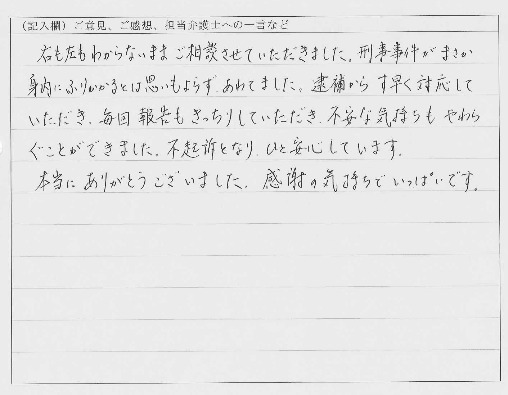 (記入欄) ご意見、ご感想、担当弁護士への一言など
右も左もわからないままご相談させていただきました。刑事事件がまさか
身内にふりかかるとは思いもよらず、あわてました。逮捕からす早く対応して
いただき、毎回報告もきっちりしていただき、不安な気持ちもやわら
ぐことができました。不起訴となり、ひと安心しています。
本当にありがとうございました。感謝の気持ちでいっぱいです。